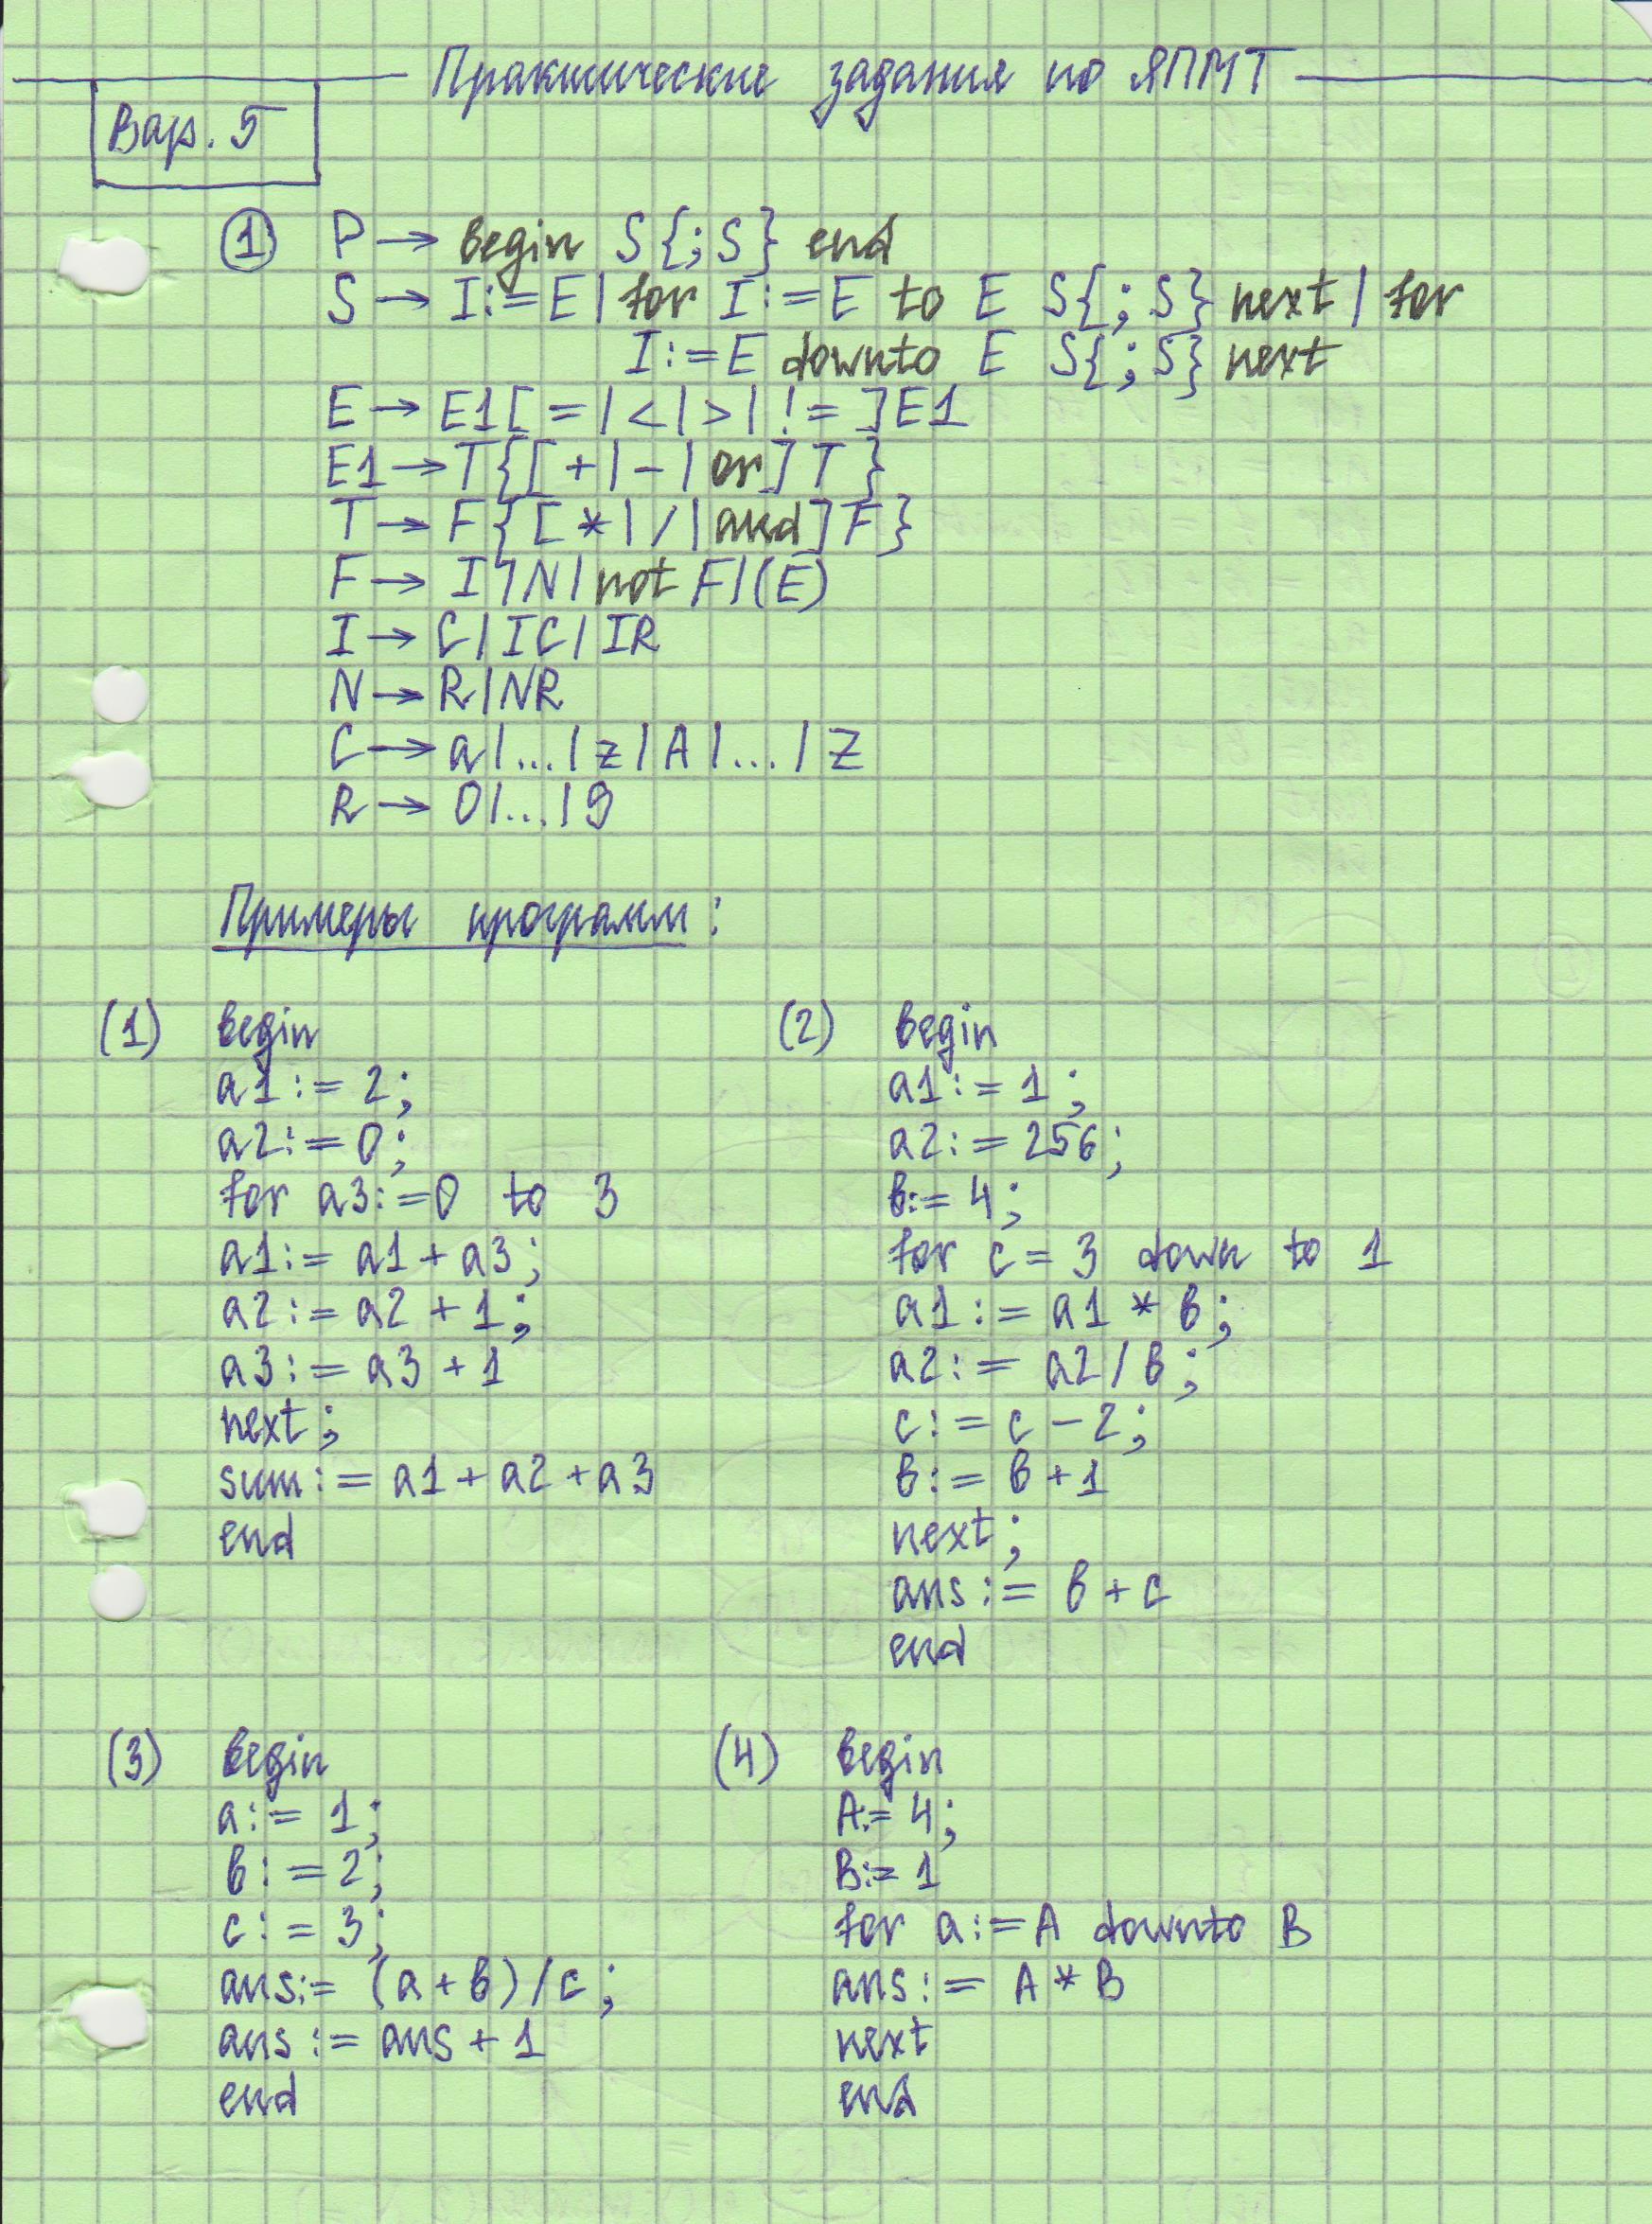 Практические задания по ЯПМТ
Вар. 5
1 P → begin S{;S} end
S → I:=E | for I:=E to E S{;S} next | for
I:=E downto E S{;S} next
E → E1[=|<|>|!=]E1
E1 → T{[+|-|or]T}
T → F{[*|/|and]F}
F → I|N|not F|(E)
I → C|IC|IR
N → R|NR
C → a|...|z|A|...|Z
R → 0|...|9
Примеры программ:
(1) begin
a1:=2;
a2:=0;
for a3:=0 to 3
a1:= a1+a3;
a2:= a2+1;
a3:= a3+1
next;
sum:= a1+a2+a3
end
(2) begin
a1:=1;
a2:=256;
b:=4;
for c=3 down to 1
a1:= a1 * b;
a2:= a2/b;
c:= c-2;
b:= b+1
next;
ans:= b+c
end
(3) begin
a:= 1;
b:=2;
c:=3;
ans:= (a+b)/c;
ans:= ans+1
end
(4) begin
A:=4;
B:=1
for a:=A downto B
ans:= A*B
next
end